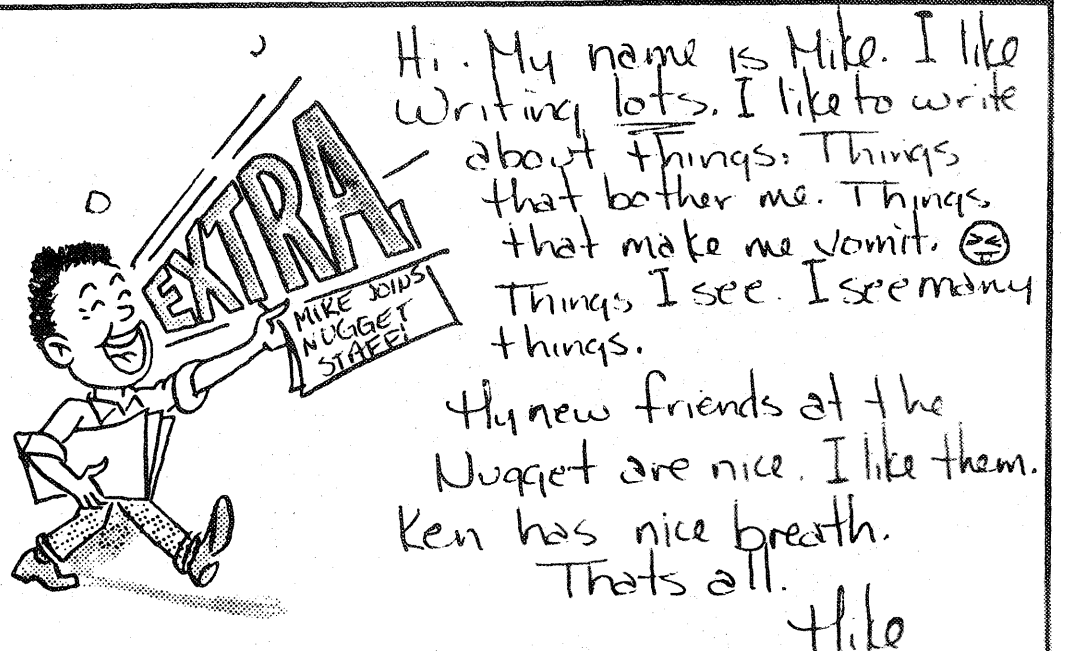 EXTRA
MIKE JOINS
NUGGET
STAFF!
Hi. My name is Mike. I like
writing lots. I like to write
about things. Things
that bother me. Things
that make me vomit.
Things I see. I see many
things.
My new friends at the
Nugget are nice. I like them.
Ken has nice breath.
Thats all.
Mike